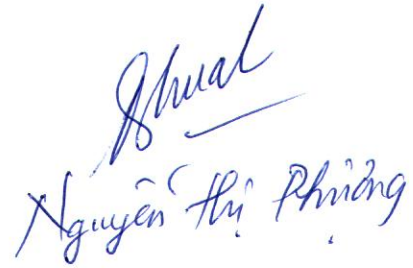 Nguyễn Thị Phượng